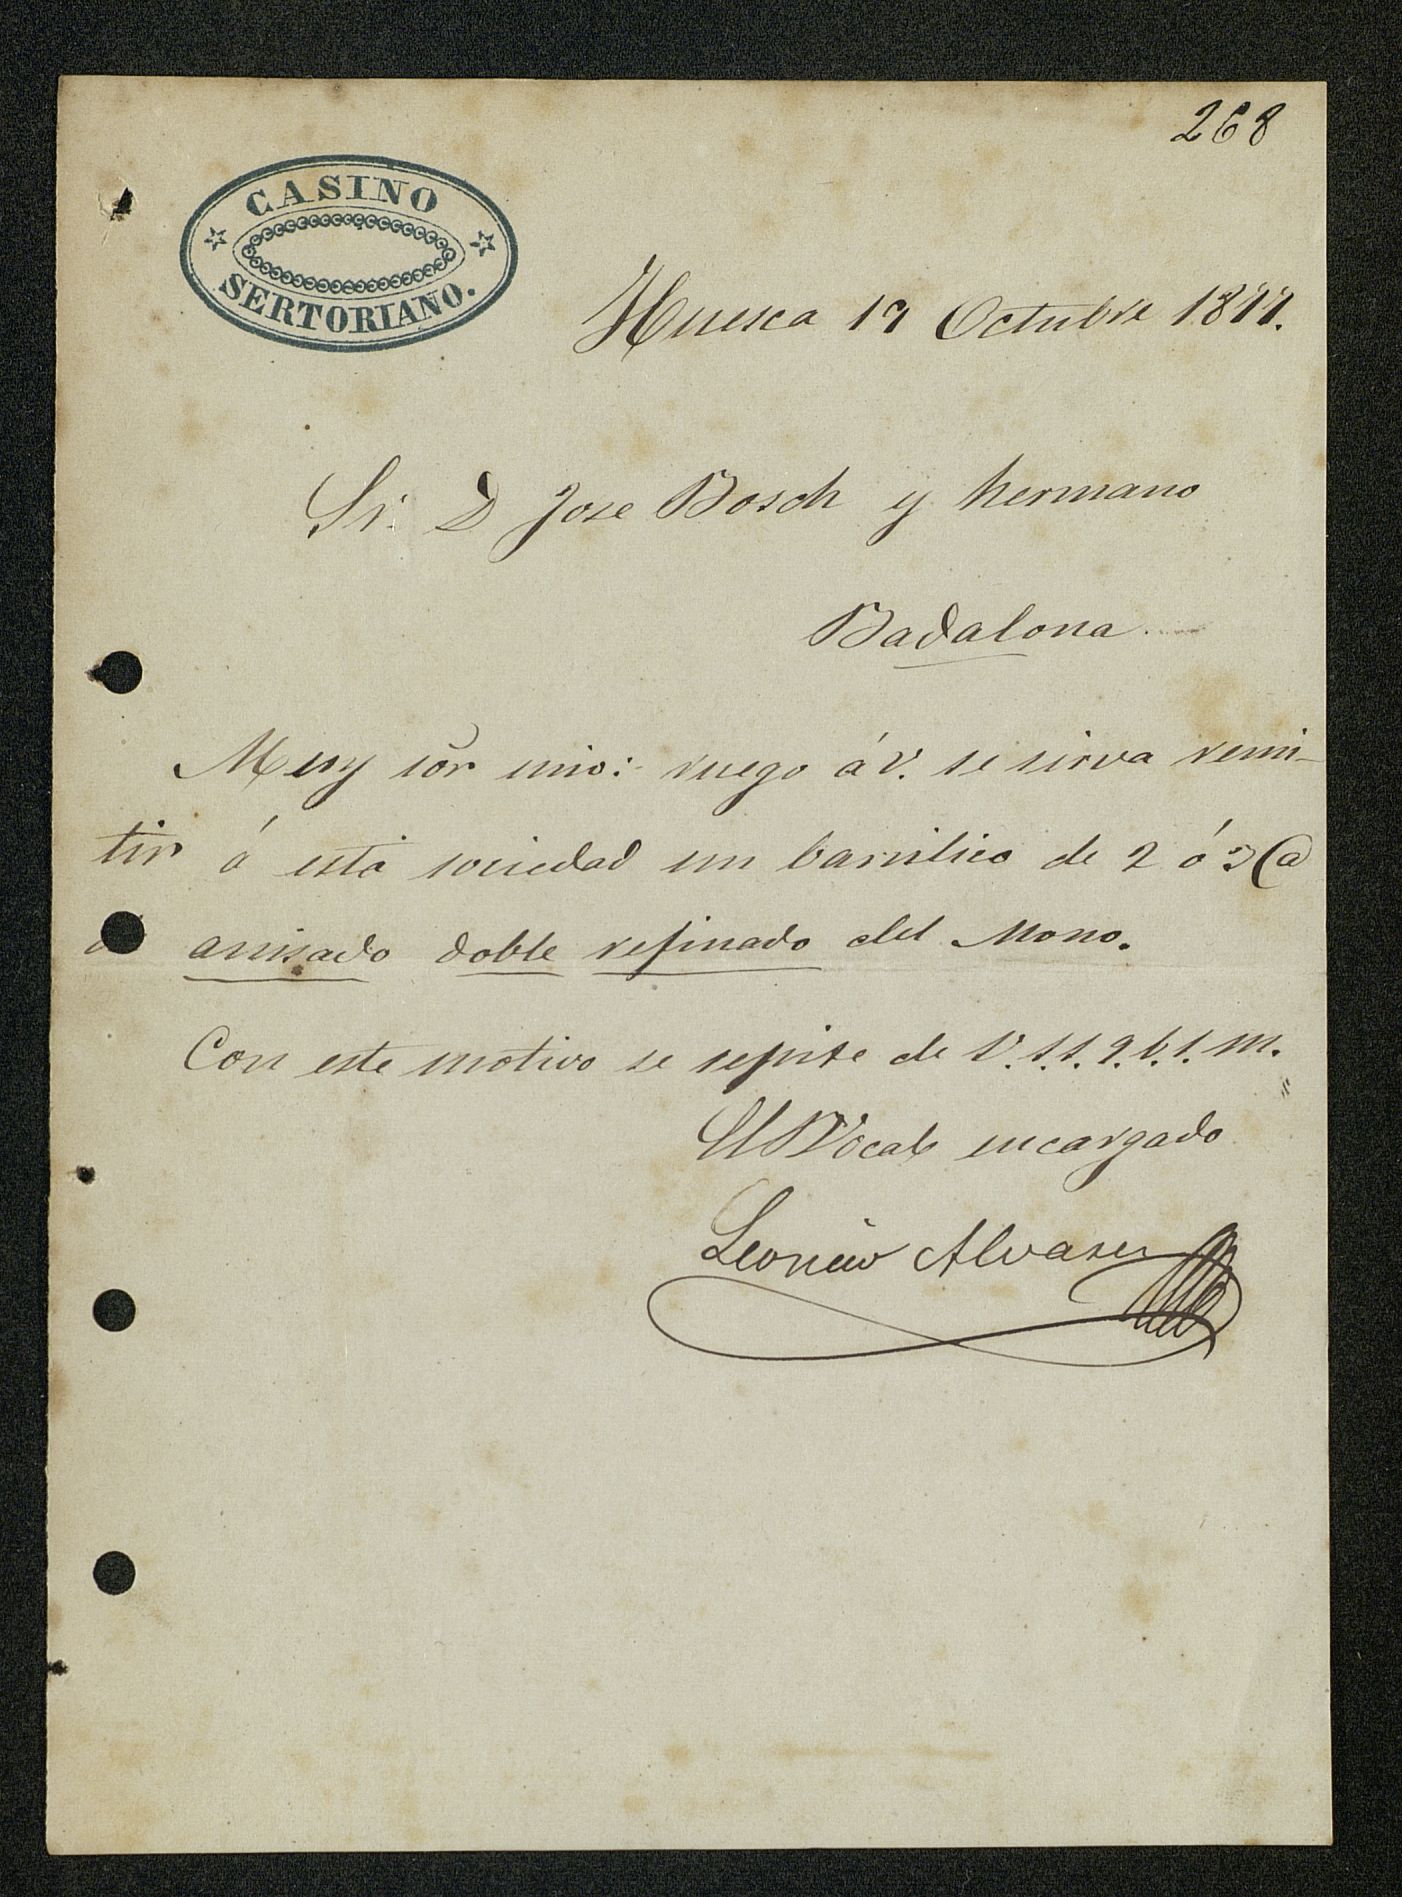 268
CASINO
SERTORIANO.
Huesca 17 Octubre 1877.
Sr. D Jose Bosch y hermano
Badalona
Muy sor mio: ruego á V. se sirva remi-
tir á esta sociedad un barrilico de 2 ó 3 @
anisado doble refinado del Mono.
Con este motivo se repite de V. s. s. q. b. s. m.
El Vocal encargado
Leoncio Alvarez